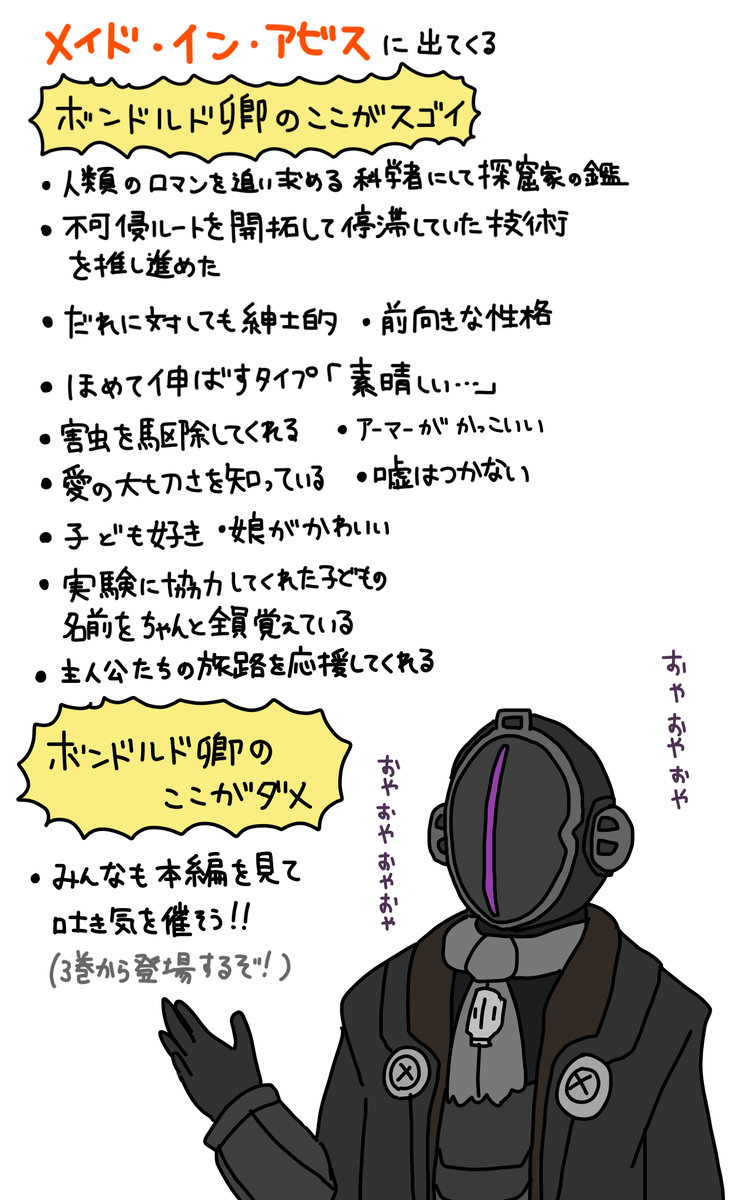 メイド・イン・アビスに出てくる
ボンドルド卿のここがスゴイ
・人類のロマンを追い求める科学者にして探窟家の鑑
・不可侵ルートを開拓して停滞していた技術
を推し進めた
・だれに対しても紳士的 ・前向きな性格
・ほめて伸ばすタイプ「素晴しい…」
・害虫を駆除してくれる ・アーマーがかっこいい
・愛の大切さを知っている ・嘘はつかない
・子ども好き ・娘がかわいい
・実験に協力してくれた子どもの
名前をちゃんと全員覚えている
・主人公たちの旅路を応援してくれる
ボンドルド卿の
ここがダメ
・みんなも本編を見て
吐き気を催そう!!
(3巻から登場するぞ!)
おやおやおや
おやおやおやおや